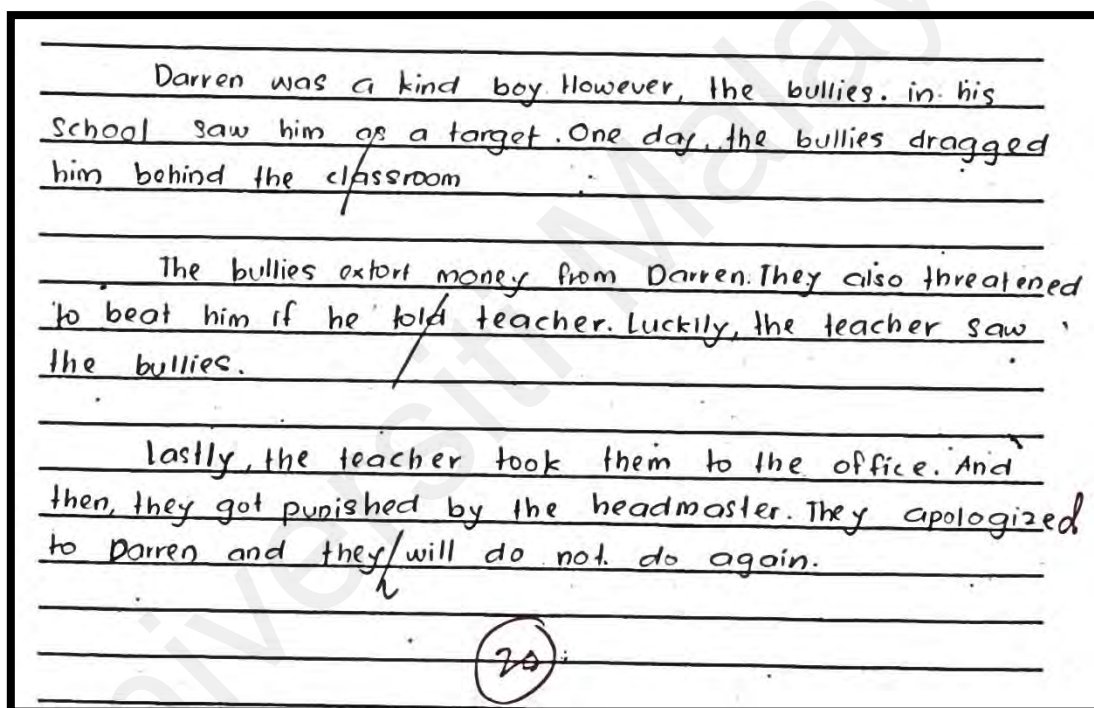 Darren was a kind boy. However, the bullies. in his
school saw him as a target. One day, the bullies dragged
him behind the classroom
The bullies extort money from Darren. They also threatened
to beat him if he told teacher. Luckily, the teacher saw
the bullies.
Lastly, the teacher took them to the office. And
then, they got punished by the headmaster. They apologized
to Darren and they will do not. do again.
20